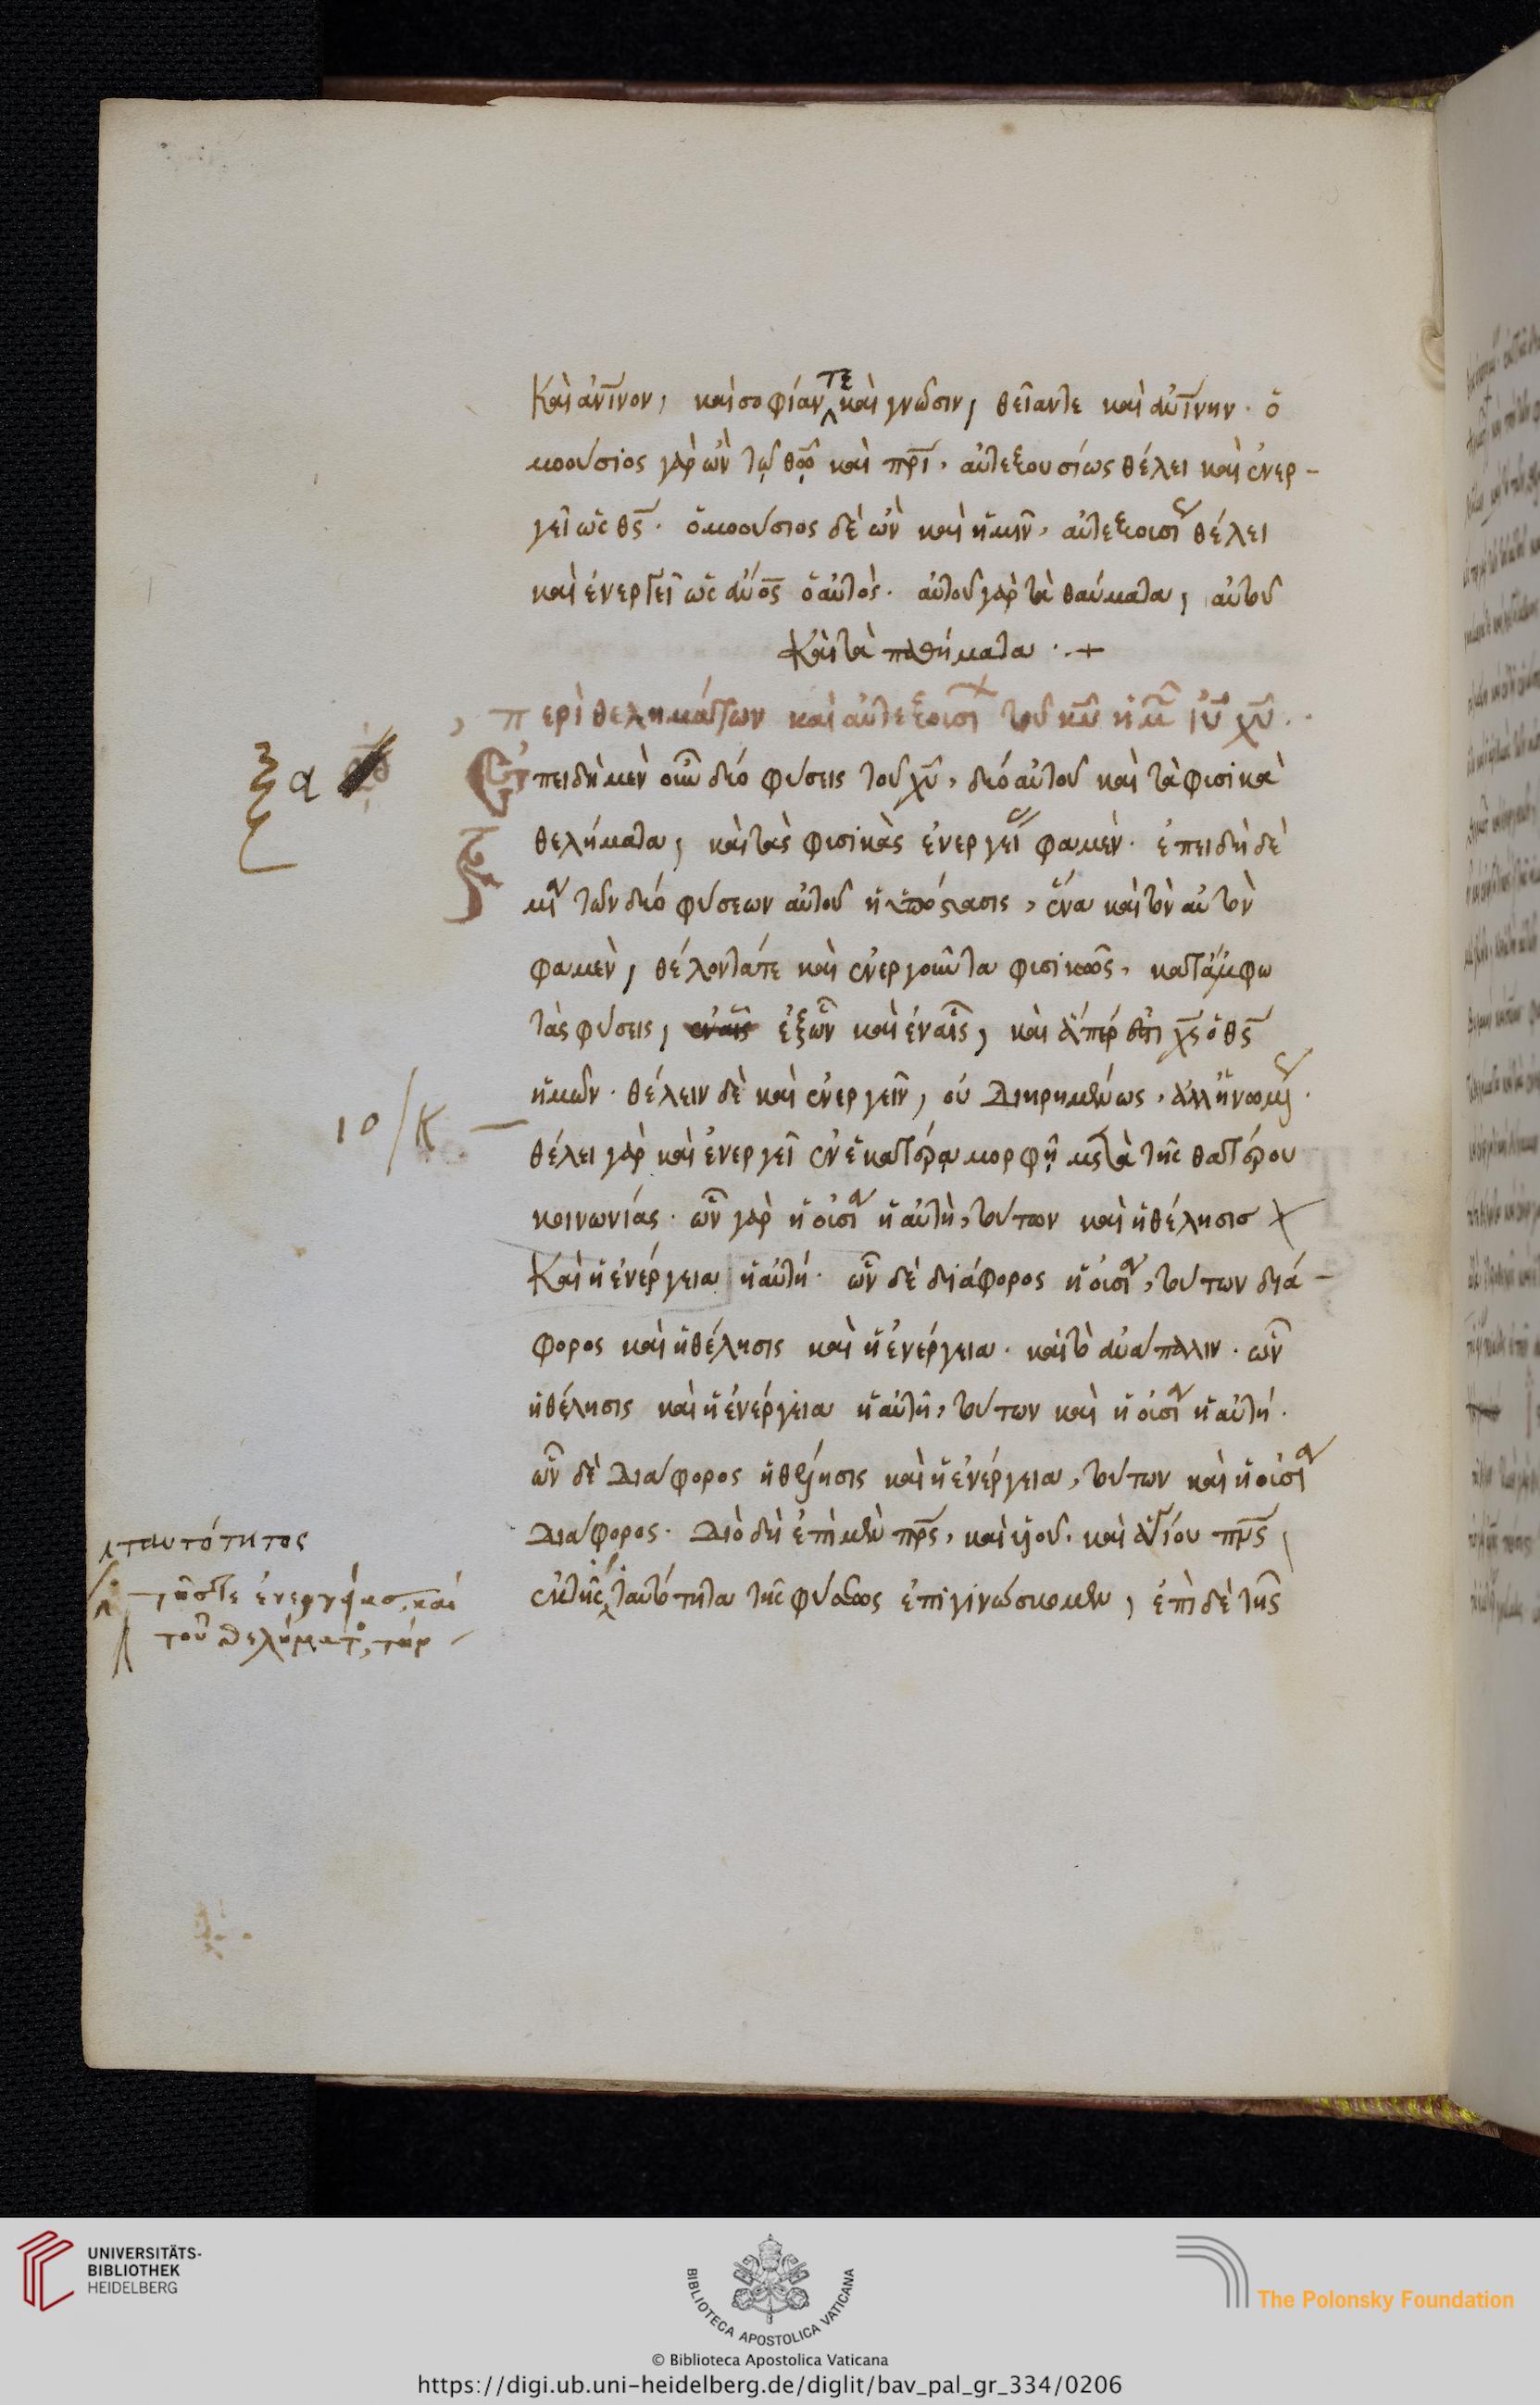 Καὶ ἀνίνον, καὶ σοφίαν τε καὶ γνῶσιν, θείαν τε καὶ ἀνίνην. ὁ
μοούσιος γὰρ ὢν τῷ θῶ καὶ πρὶ, αὐτεξουσίως θέλει καὶ ἐνερ-
γεῖ ὡς θς. ὁμοούσιος δὲ ὢν καὶ ἡμῖν, αὐτεξουσι θέλει
καὶ ἐνεργεῖ ὡς ἀνος ὁ αὐτὸς. αὐτοῦ γὰρ τὰ θαύματα, αὐτοῦ
Καὶ τὰ παθήματα . +
περὶ θελημάτων καὶ αὐτεξουσι τοῦ κυ ἡμ ιυ χυ.
ξα
Ἐπειδὴ μὲν οὖν δύο φύσεις τοῦ χυ, δύο αὐτοῦ καὶ τὰ φισικὰ
θελήματα, καὶ τὰς φισικὰς ἐνεργεί φαμὲν. ἐπειδὴ δὲ
μία τῶν δύο φύσεων αὐτοῦ ἡ ὑπόστασις, ἕνα καὶ τὸν αὐτὸν
φαμὲν, θέλοντά τε καὶ ἐνεργοῦντα φισικῶς, κατάμφω
τὰς φύσεις, ἐξὧν καὶ ἐναἷς, καὶ ἅπέρ ἐστι χς ὁ θς
ἡμῶν. θέλειν δὲ καὶ ἐνεργεῖν, οὐ διηρημένως, ἀλλ' ἡνωμέ.
10/κ
θέλει γὰρ καὶ ἐνεργεῖ ἐν ἑκατέρα μορφῇ μετὰ τῆς θατέρου
κοινωνίας. ὧν γὰρ ἡ οὐσία ἡ αὐτὴ, τούτων καὶ ἡ θέλησισ
Καὶ ἡ ἐνέργεια ἡ αὐτή. ὧν δὲ διάφορος ἡ οὐσία, τούτων διά-
φορος καὶ ἡ θέλησις καὶ ἡ ἐνέργεια. καὶ τὸ ἀνάπαλιν. ὧν
ἡ θέλησις καὶ ἡ ἐνέργεια ἡ αὐτὴ, τούτων καὶ ἡ οὐσία ἡ αὐτή.
ὧν δὲ διάφορος ἡ θέλησις καὶ ἡ ἐνέργεια, τούτων καὶ ἡ οὐσία
διάφορος. διὸ δὴ ἐπὶ μὲν πρς, καὶ υἱοῦ. καὶ ἁγίου πνς
ἐκ τῆς ταυτότητα τῆς φύσεως ἐπιγινώσκομεν, ἐπὶ δὲ τῆς
ταυτότητος
τῆς τε ἐνεργείας, καὶ
τοῦ θελήματο, τὴν
UNIVERSITÄTS-
BIBLIOTHEK
HEIDELBERG
BIBLIOTECA APOSTOLICA VATICANA
The Polonsky Foundation
© Biblioteca Apostolica Vaticana
https://digi.ub.uni-heidelberg.de/diglit/bav_pal_gr_334/0206